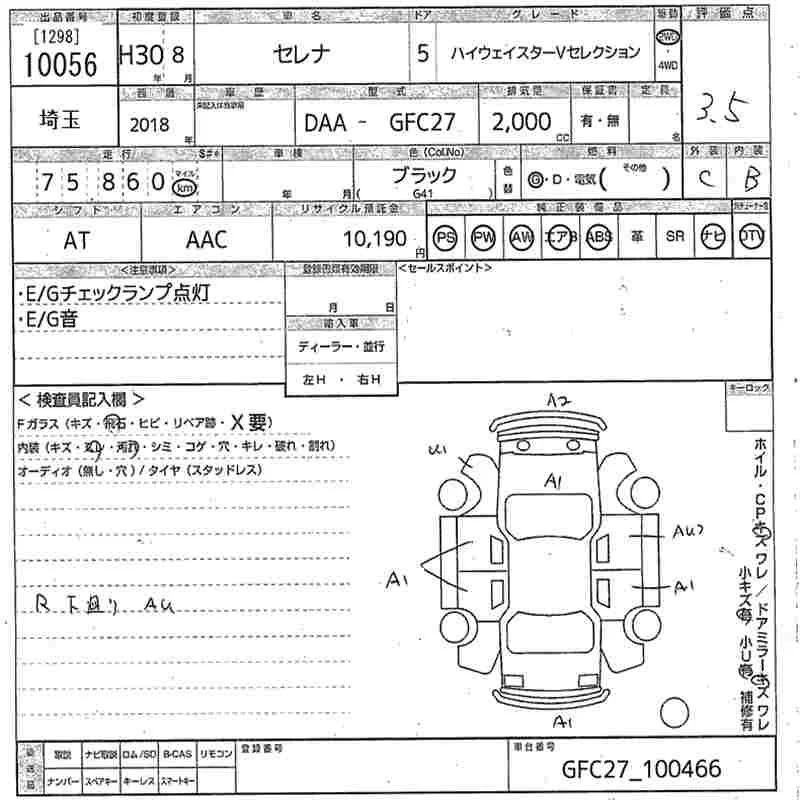 出品番号 初度登録 車名 ドア グレード 駆動 評価点
[1298]
10056 H30年 8月 セレナ 5 ハイウェイスターVセレクション 2WD・4WD
3.5
車歴 型式 排気量 保証書 定員
埼玉 2018年 DAA - GFC27 2,000cc 有・無 名
走行 S#* 車検 色(Col.No) 燃料 外装 内装
75860 マイル km 年 月 ブラック 色替 G・D・電気( その他 ) C B
( G41 )
シフト エアコン リサイクル預託金 純正装備品
AT AAC 10,190円 PS PW AW エアB ABS 革 SR ナビ DTV
<注意事項> <セールスポイント>
・E/Gチェックランプ点灯
・E/G音
月 日
輸入車
ディーラー・並行
左H ・ 右H
< 検査員記入欄 > キーロック
Fガラス(キズ・飛石・ヒビ・リペア跡・X要)
内装(キズ・スレ・汚れ・シミ・コゲ・穴・キレ・破れ・割れ)
オーディオ(無し・穴)/タイヤ(スタッドレス)
A2
U1
A1
AU2
A1
A1
R下廻り AU
A1
ホイル・CPキズワレ/ドアミラーキズワレ
小キズ有 小U有 補修有
取説 ナビ取説 ロム/SD B-CAS リモコン 登録番号 車台番号
ナンバー スペアキー キーレス スマートキー
GFC27_100466